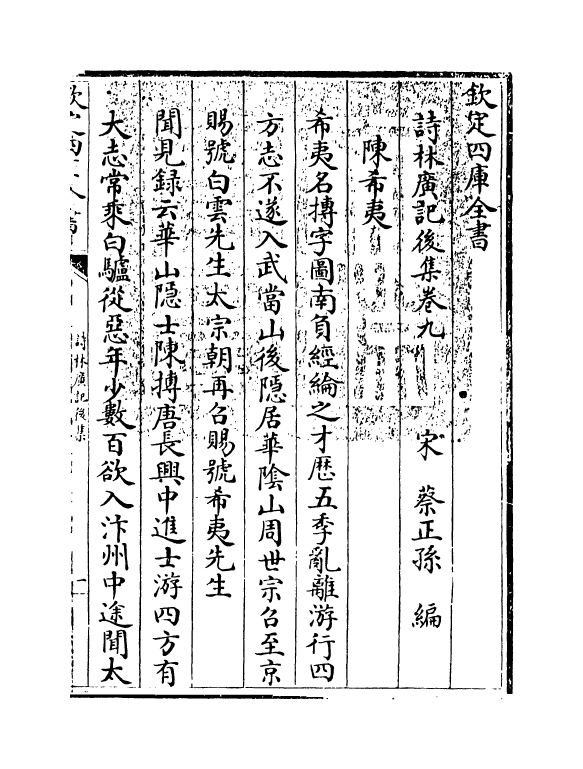 欽定四庫全書
詩林廣記後集卷九
宋 蔡正孫 編
陳希夷
希夷名摶字圖南負經綸之才歴五季亂離游行四
方志不遂入武當山後隠居華隂山周世宗召至京
賜號白雲先生太宗朝再召賜號希夷先生
聞見録云華山隠士陳摶唐長興中進士游四方有
大志常乘白驢從惡年少數百欲入汴州中途聞太
詩林廣記後集